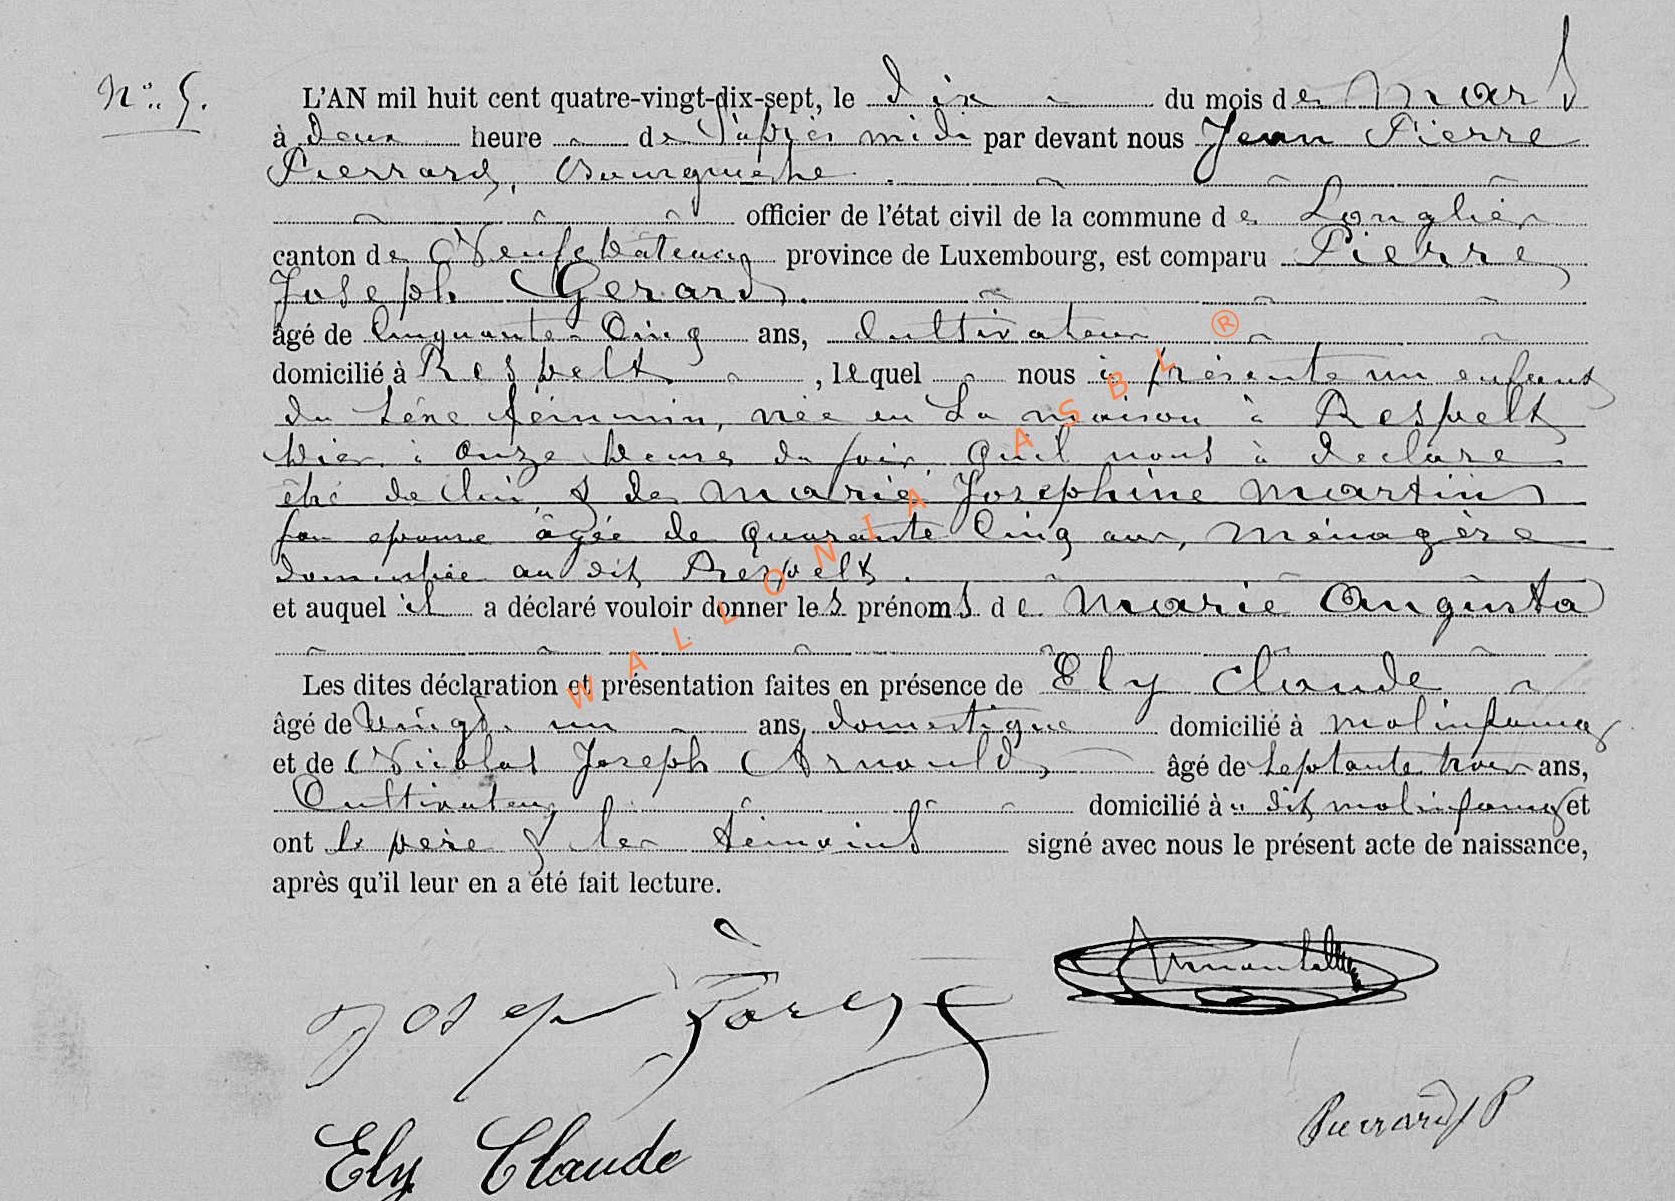 N°.. 5. L'AN mil huit cent quatre-vingt-dix-sept, le dix du mois de Mars
à deux heure de l'après midi par devant nous Jean Pierre
Pierrard, Bourgmestre
officier de l'état civil de la commune de Longlier
canton de Neufchâteau province de Luxembourg, est comparu Pierre
Joseph Gerard
âgé de Cinquante Cinq ans, Cultivateur
domicilié à Respelt, lequel nous à présente un enfant
du sexe féminin, née en sa maison à Respelt
hier à onze heures du soir, qu'il nous à declare
être de lui & de Marie Josephine Martin
son epouse âgée de quarante Cinq ans, Ménagère
domiciliée au dit Respelt.
et auquel il a déclaré vouloir donner les prénoms de Marie Augusta
Les dites déclaration et présentation faites en présence de Ely Claude
âgé de vingt un ans, domestique domicilié à Molinfaing
et de Nicolas Joseph Arnould âgé de septante trois ans,
Cultivateur domicilié à dit Molinfaing et
ont le père & les témoins signé avec nous le présent acte de naissance,
après qu'il leur en a été fait lecture.
Ely Claude
Pierrard J P
WALLONIA ASBL ®